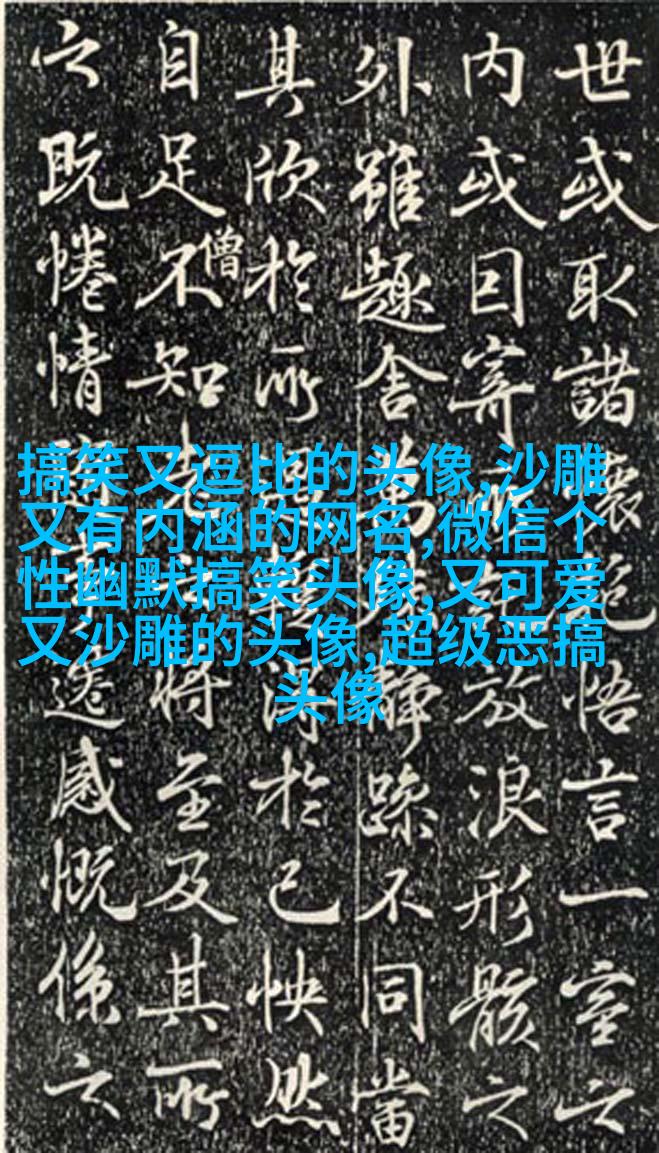 世或取諸懷抱悟言一室之
内或因寄所放浪形骸之
外雖趣舍萬靜躁不同當
其欣於所得於己怏然
自足不知老將至及其所
僧
之既惓情遷感慨係之
搞笑又逗比的头像,沙雕
又有内涵的网名,微信个
性幽默搞笑头像,又可爱
又沙雕的头像,超级恶搞
头像